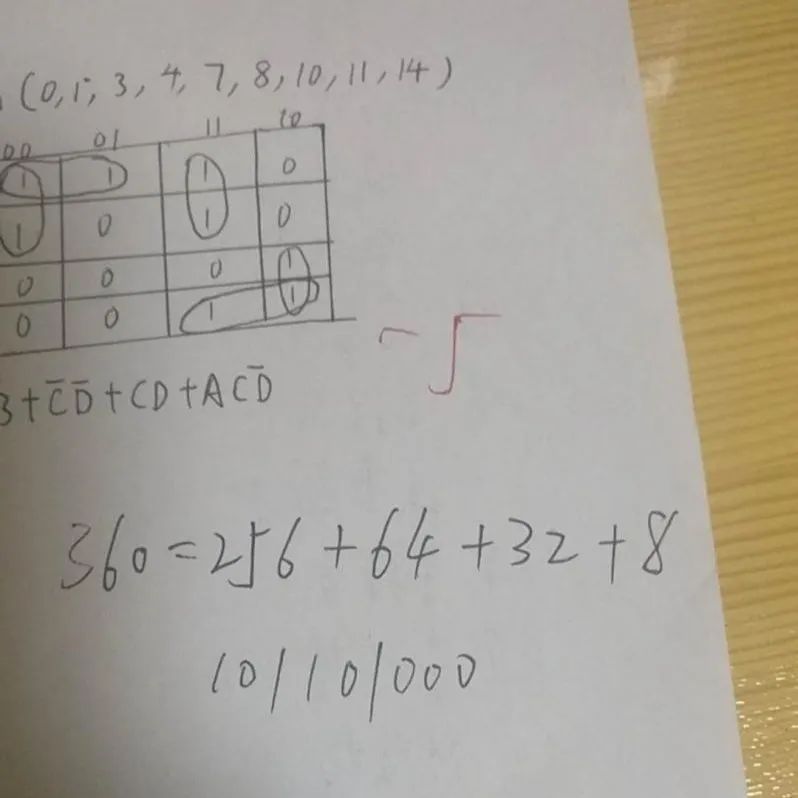 (0, 1, 3, 4, 7, 8, 10, 11, 14)
00 01 11 10
1 1 1 0
1 0 1 0
0 0 0 1
0 0 1 1
-5
+ C̅D̅ + CD + ACD̅
360 = 256 + 64 + 32 + 8
101101000